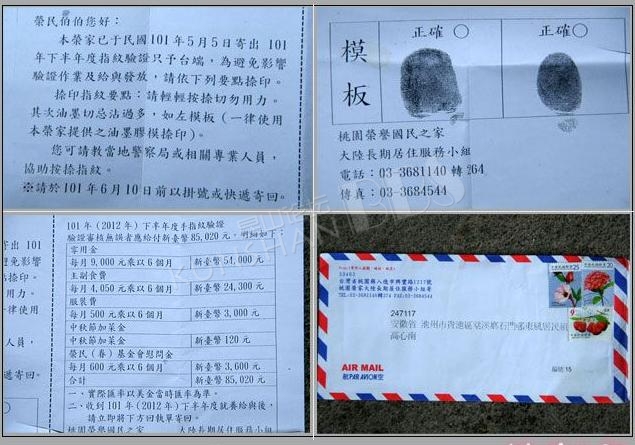 榮民伯伯您好：
本榮家已于民國101年5月5日寄出101
年下半年度指紋驗證只予台端，為避免影響
驗證作業及給與發放，請依下列要點捺印。
捺印指紋要點：請輕輕按捺切勿用力。
其次油墨切忌沾過多，如左模板（一律使用
本榮家提供之油墨膠模捺印）。
您可請教當地警察局或相關專業人員，
協助按捺指紋。
※請於101年6月10日前以掛號或快遞寄回。
正確○
正確○
模
板
桃園榮譽國民之家
大陸長期居住服務小組
電話：03-3681140轉264
傳真：03-3684544
寄出101
避免影響
捺印。
用力。
一律使用
人員，
寄回。
101年(2012年)下半年度手指紋驗證
驗證審核無誤者應給付新臺幣85,020元，明細如下：
零用金
每月9,000元乘以6個月 新臺幣54,000元
主副食費
每月4,050元乘以6個月 新臺幣24,300元
服裝費
每月500元乘以6個月 新臺幣3,000元
中秋節加菜金
中秋節加菜金 新臺幣120元
榮民（眷）基金會慰問金
每月600元乘以6個月 新臺幣3,600元
合計 新臺幣85,020元
一、實際匯率以美金當時匯率為準。
二、收到101年(2012年)下半年度就養給與後，
請立即將下方回執單寄回。
桃園榮譽國民之家 大陸長期居住服務小組
33463
台灣省桃園縣八德市興豐路1217號
桃園榮家大陸長期居住服務小組寄
TEL:03-3681140轉274 FAX:03-3684544
25
20
9
247117
安徽省 池州市貴池區棠溪磨石門
高心南
AIR MAIL
航 PAR AVION 空
編號 15